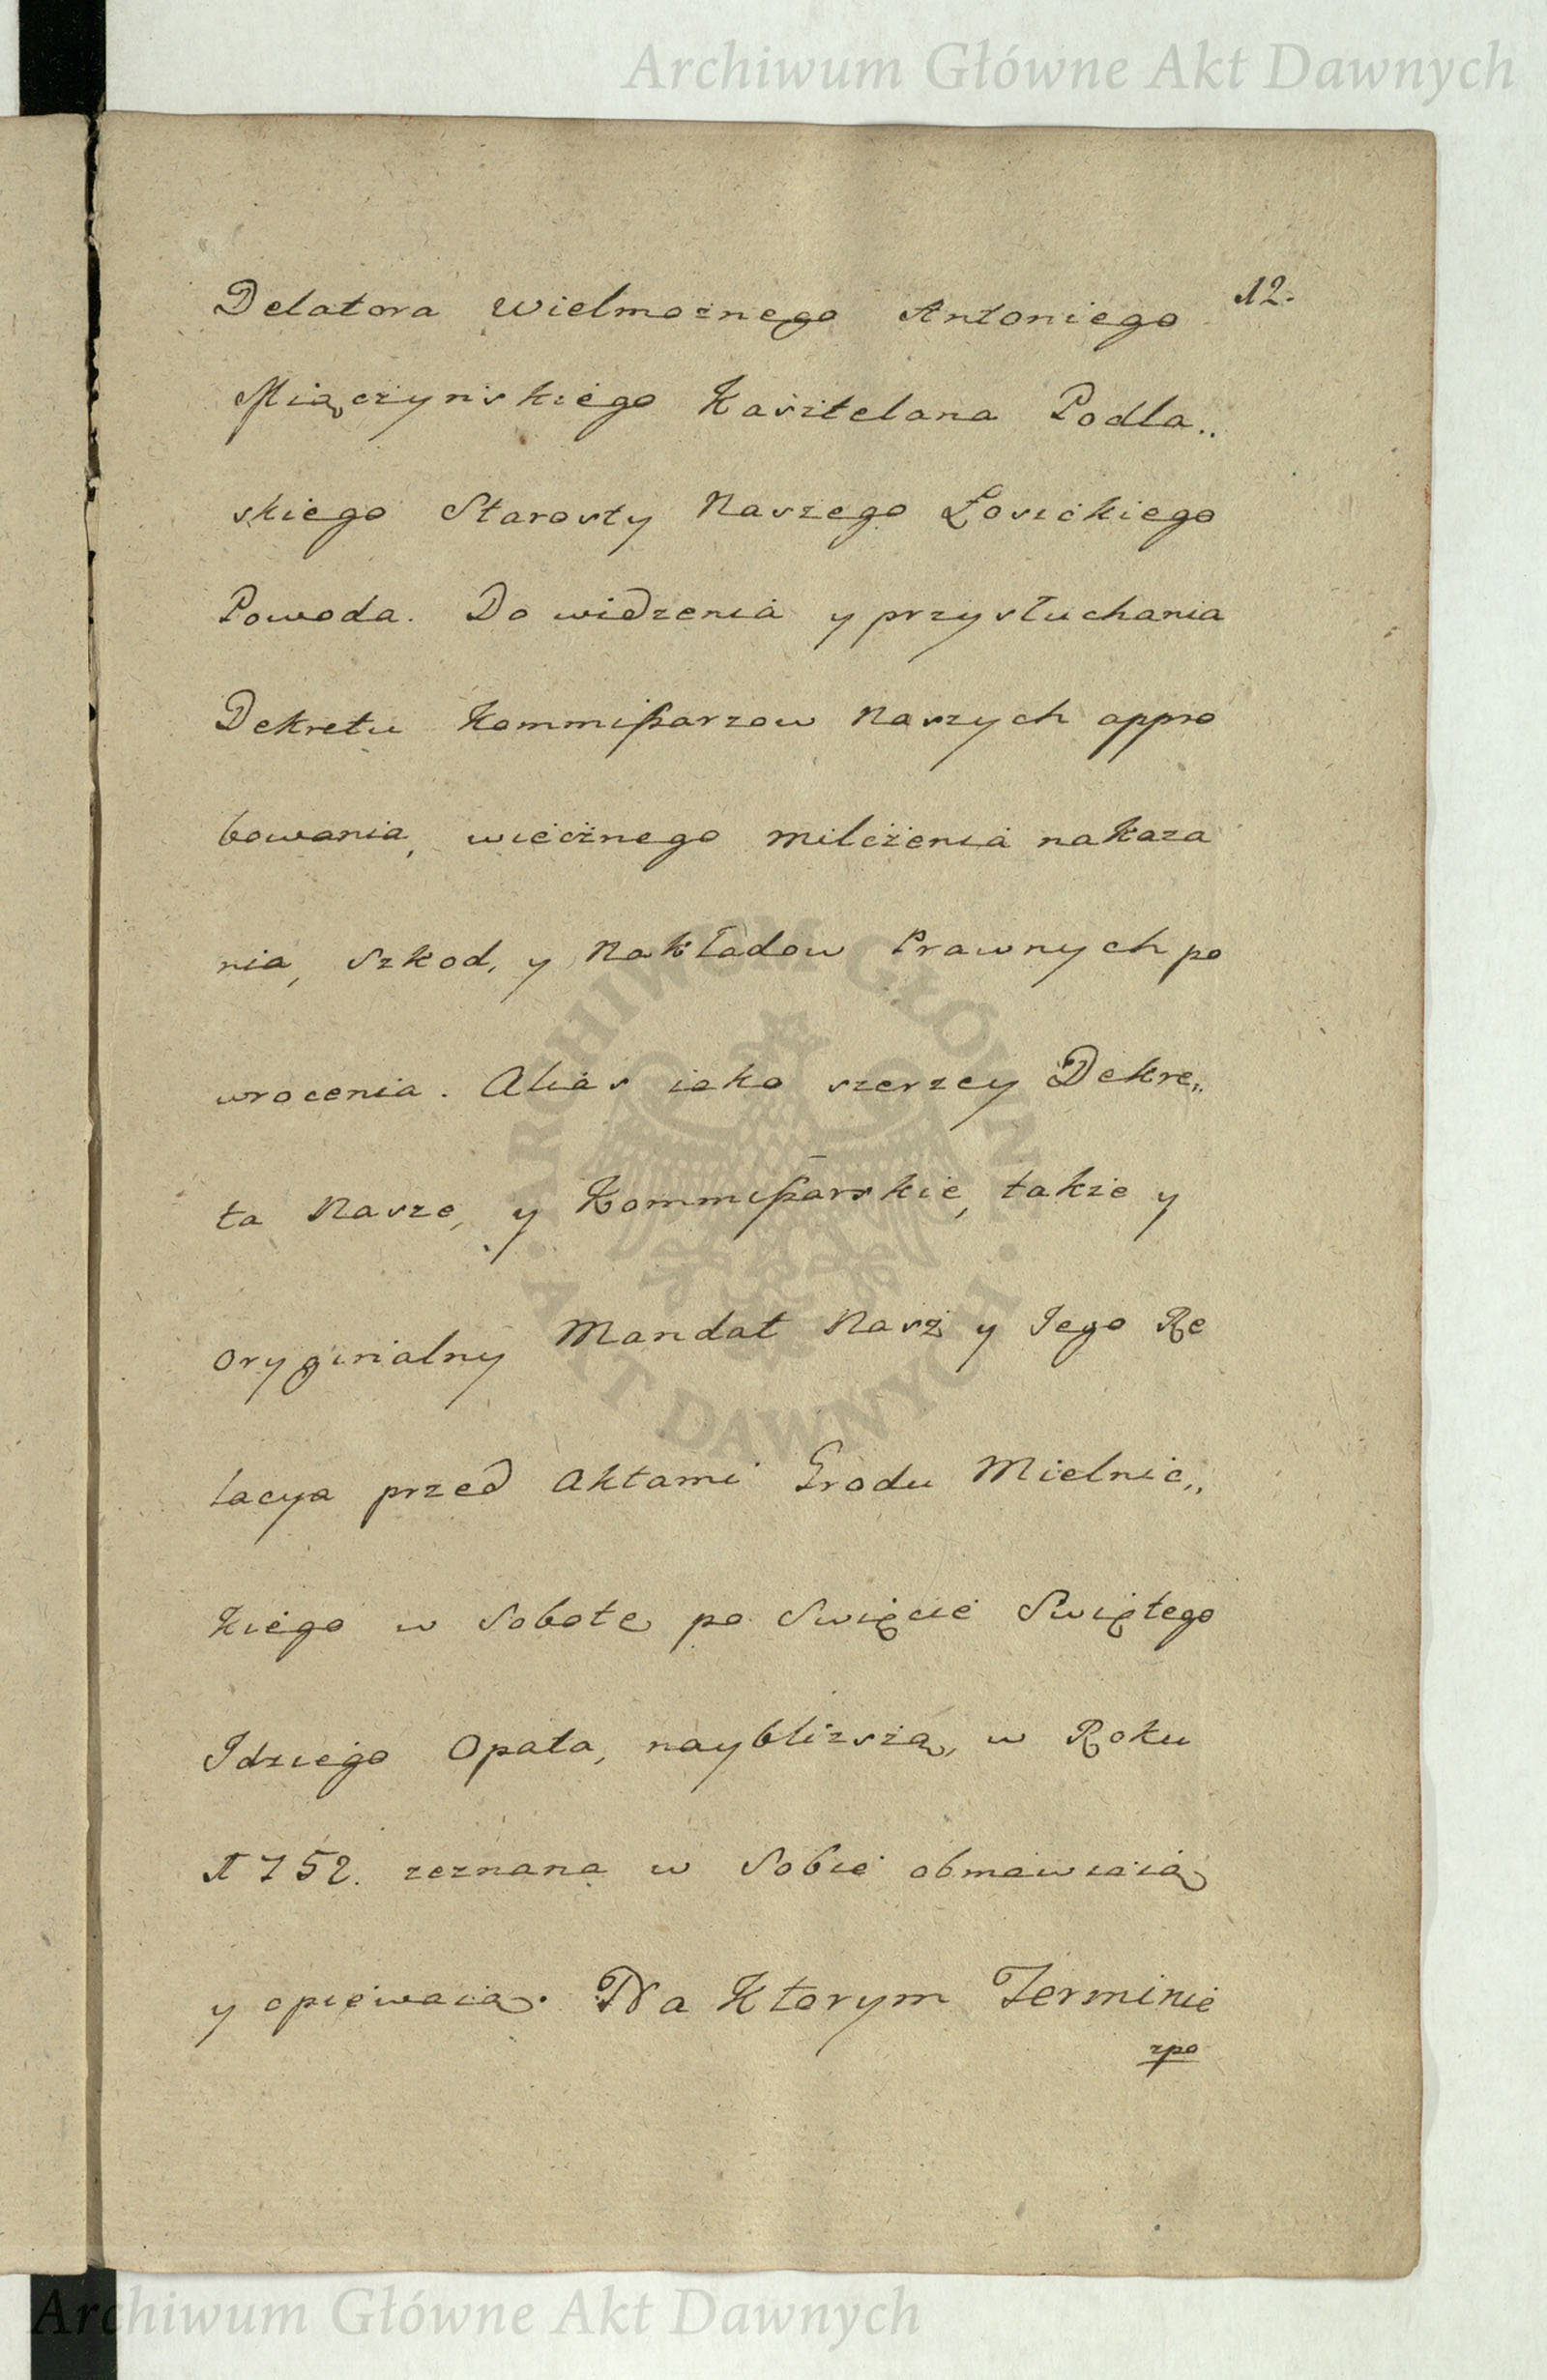 Archiwum Główne Akt Dawnych
12.
Delatora Wielmoznego Antoniego
Miączyńskiego Kasztelana Podla„
skiego Starosty Naszego Łosickiego
Powoda. Do widzenia y przysłuchania
Dekretu Kommißarzow Naszych appro
bowania, wiecznego milczenia nakaza
nia, Szkod, y Nakładow Prawnych po
wrocenia. Alias iako szerzey Dekre„
ta Nasze, y Kommißarskie, takze y
oryginalny Mandat Nasz y Jego Re
lacya przed Aktami Grodu Mielnic„
kiego w Sobotę po Swięcie Swiętego
Idziego Opata, naybliższą, w Roku
1752. zeznana w Sobie obmawiaią
y opiewaią. Na Ktorym Terminie
zpo
ARCHIWUM GŁÓWNE
AKT DAWNYCH
Archiwum Główne Akt Dawnych